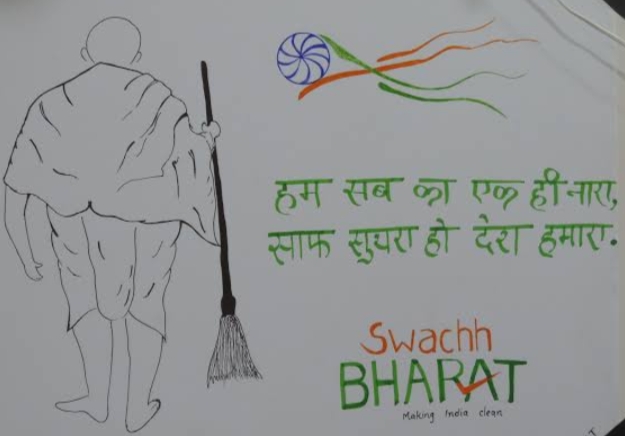 हम सब का एक ही नारा,
साफ सुथरा हो देश हमारा.
Swachh
BHARAT
Making India clean